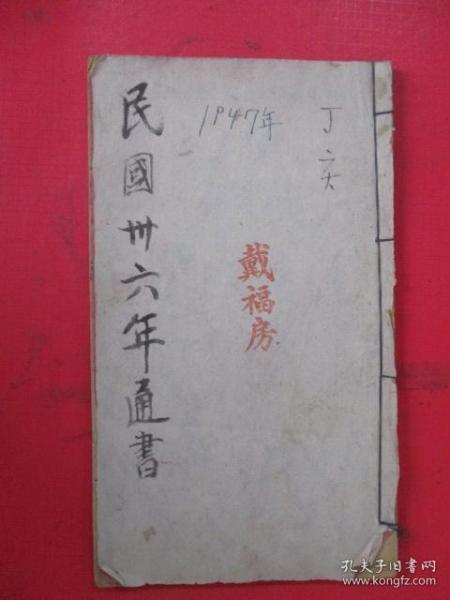 民國卅六年通書
1947年
丁亥
戴福房
孔夫子旧书网
www.kongfz.com